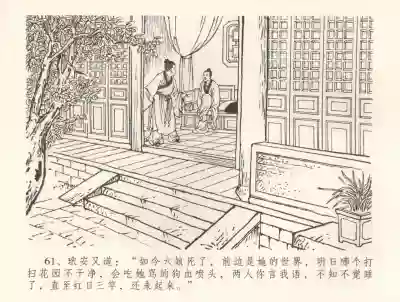 61、玳安又道：“如今六娘死了，前边是她的世界，明日哪个打
扫花园不干净，会吃她骂的狗血喷头，两人你言我语，不知不觉睡
了，直至红日三竿，还未起来。”